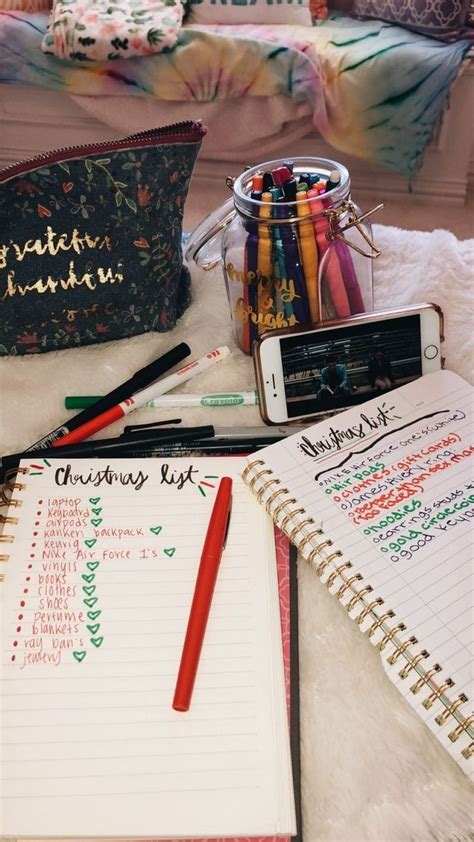 DREAM
grateful
thankful
merry
&
bright
crayola
Christmas list
laptop
keyboard
airpods
kanken backpack
keurig
Nike Air Force 1's
vinyls
books
clothes
shoes
perfume
blankets
ray ban's
jewelry
Christmas list
AIR PODS
clothes (gift cards)
James Avery ring
hoodies
good keyb